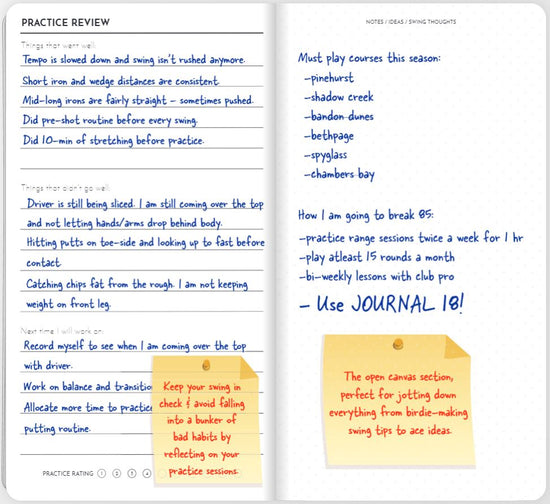 PRACTICE REVIEW
Things that went well:
Tempo is slowed down and swing isn't rushed anymore.
Short iron and wedge distances are consistent.
Mid-long irons are fairly straight - sometimes pushed.
Did pre-shot routine before every swing.
Did 10-min of stretching before practice.
Things that didn't go well:
Driver is still being sliced. I am still coming over the top
and not letting hands/arms drop behind body.
Hitting putts on toe-side and looking up to fast before
contact.
Catching chips fat from the rough. I am not keeping
weight on front leg.
Next time I will work on:
Record myself to see when I am coming over the top
with driver.
Work on balance and transitio
Allocate more time to practice
putting routine.
PRACTICE RATING 1 2 3 4
Keep your swing in
check & avoid falling
into a bunker of
bad habits by
reflecting on your
practice sessions.
NOTES / IDEAS / SWING THOUGHTS
Must play courses this season:
-pinehurst
-shadow creek
-bandon dunes
-bethpage
-spyglass
-chambers bay
How I am going to break 85:
-practice range sessions twice a week for 1 hr
-play atleast 15 rounds a month
-bi-weekly lessons with club pro
- Use JOURNAL 18!
The open canvas section,
perfect for jotting down
everything from birdie-making
swing tips to ace ideas.